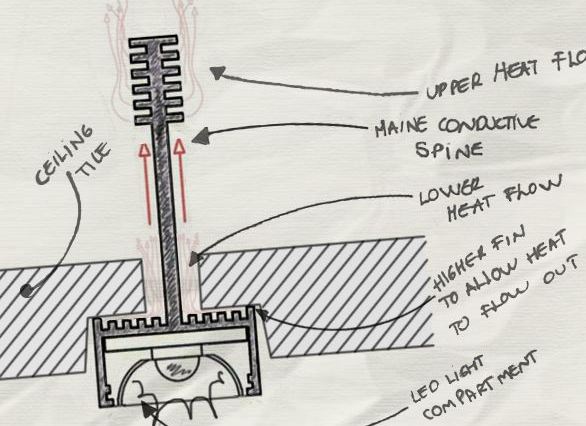 UPPER HEAT FLO
MAINE CONDUCTIVE
SPINE
CEILING
TILE
LOWER
HEAT FLOW
HIGHER FIN
TO ALLOW HEAT
TO FLOW OUT
LED LIGHT
COMPARTMENT